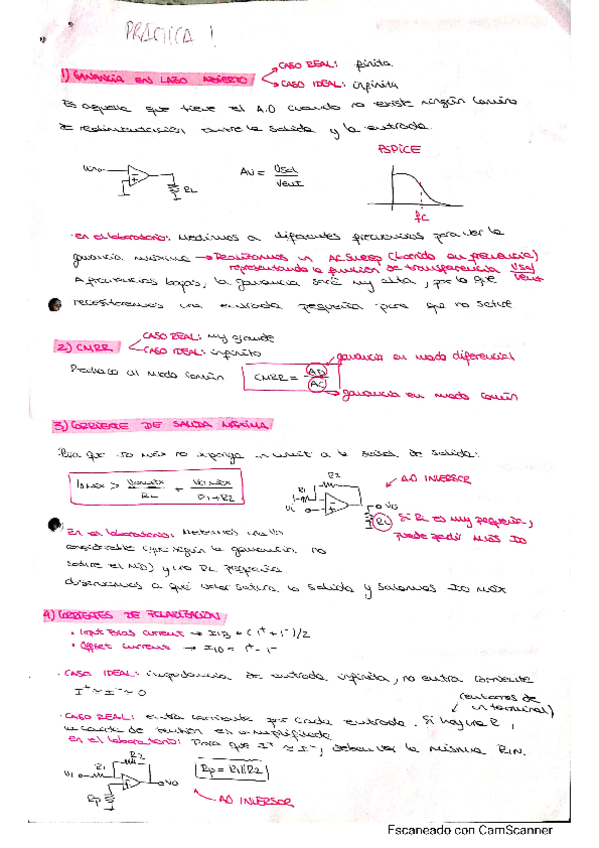 PRACTICA 1
1) GANANCIA EN LAZO ABIERTO
CASO REAL: finita.
CASO IDEAL: infinita
Es aquella que tiene el A.O cuando no existe ningún camino
de realimentación entre la salida y la entrada.
PSPICE
RL
AV = Vsal / Vent
fc
· En el laboratorio: Medimos a diferentes frecuencias para ver la
ganancia máxima → Realizamos un AC SWEEP (barrido en frecuencia)
representando la función de transferencia Vsal / Vent
A frecuencias bajas, la ganancia será muy alta, por lo que
necesitaremos una entrada pequeña para que no sature
2) CMRR
CASO REAL: muy grande
CASO IDEAL: infinito
Rechazo al modo común
CMRR = AD / AC
ganancia en modo diferencial
ganancia en modo común
3) CORRIENTE DE SALIDA MÁXIMA
Para que Io máx no suponga un límite a la señal de salida:
Iomáx ≥ Vomáx / RL + Vomáx / R1+R2
R2
R1
Vi
Vo
RL
AO INVERSOR
Si RL es muy pequeña,
puede pedir más Io
En el laboratorio: Metemos una Vin
considerable (que según la ganancia no
sature el AO) y una RL pequeña
observamos a qué valor satura la salida y sacamos Io máx
4) CORRIENTES DE POLARIZACIÓN
• Input Bias current → IIB = (I⁺ + I⁻)/2
• Offset current → IIO = I⁺ - I⁻
· CASO IDEAL: impedancia de entrada infinita, no entra corriente
I⁺ ≈ I⁻ ≈ 0
(entornos de
un terminal)
· CASO REAL: entra corriente por cada entrada. Si hay una R,
la caída de tensión es amplificada
En el laboratorio: Para que I⁺ ≈ I⁻, deben ver la misma RIN.
R2
R1
Vi
Vo
Rp
Rp = R1||R2
AO INVERSOR
Escaneado con CamScanner